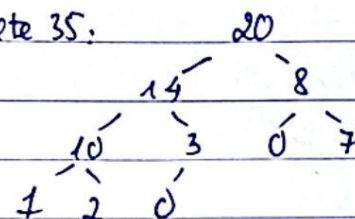 ete 35: 20
14 8
10 3 0 7
1 2 0